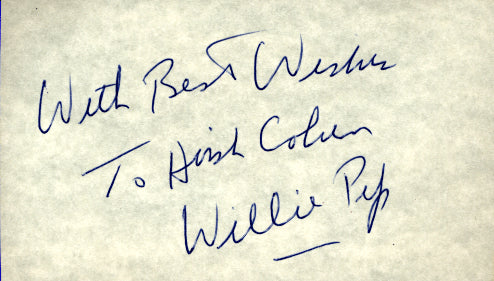 With Best Wishes
To Hirsh Cohen
Willie Pep